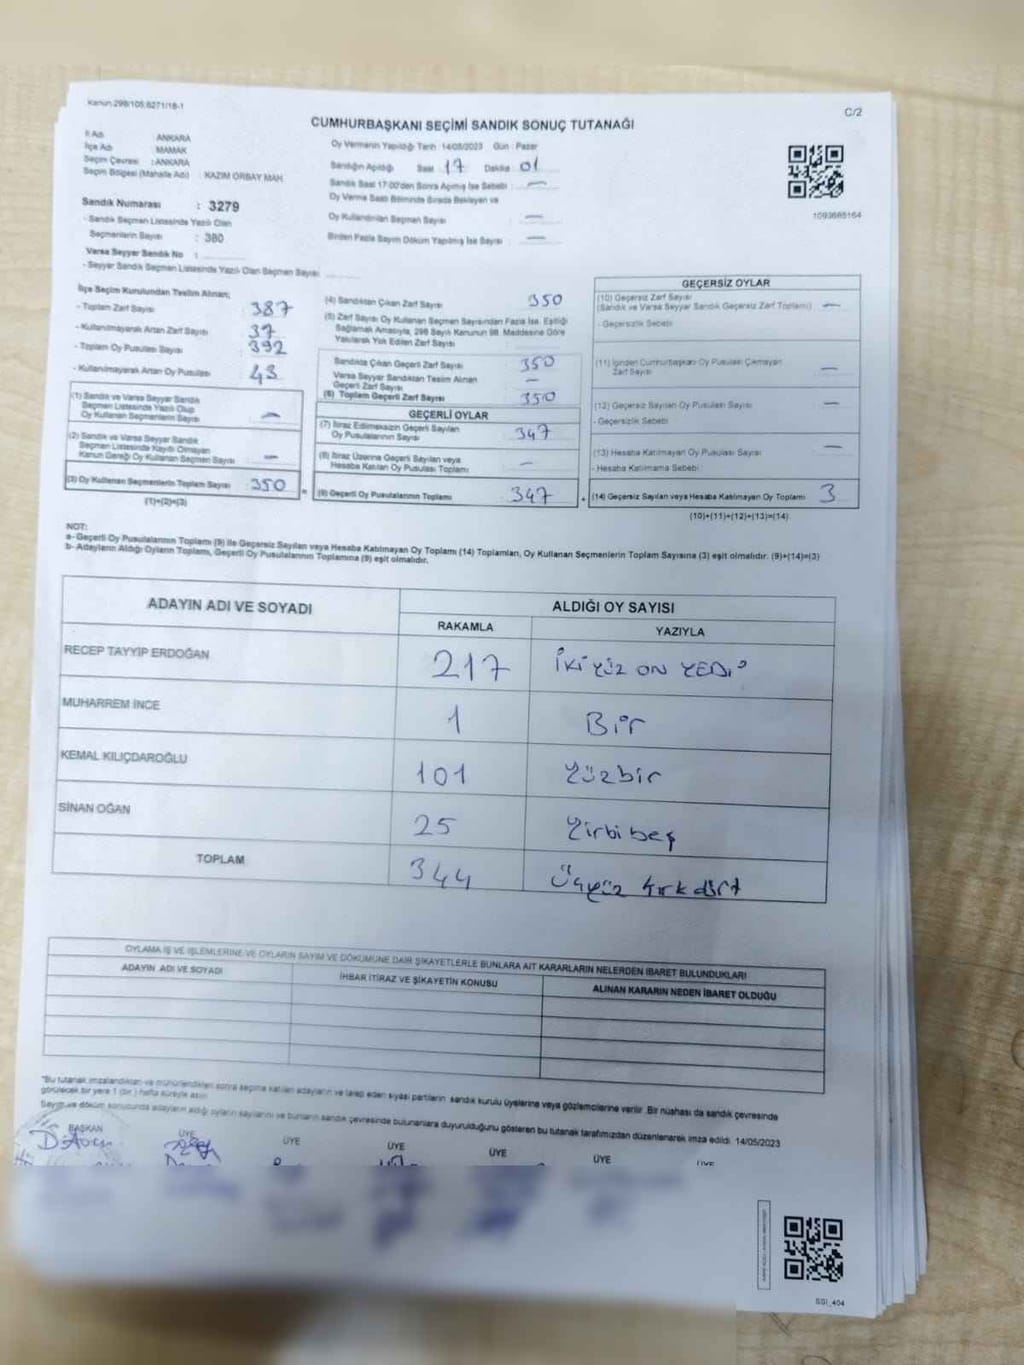 Kanun:298/105;6271/18-1
C/2
CUMHURBAŞKANI SEÇİMİ SANDIK SONUÇ TUTANAĞI
İl Adı : ANKARA
İlçe Adı : MAMAK
Seçim Çevresi : ANKARA
Seçim Bölgesi (Mahalle Adı) : KAZIM ORBAY MAH
Sandık Numarası : 3279
- Sandık Seçmen Listesinde Yazılı Olan
Seçmenlerin Sayısı : 380
Varsa Seyyar Sandık No :
- Seyyar Sandık Seçmen Listesinde Yazılı Olan Seçmen Sayısı
Oy Vermenin Yapıldığı Tarih 14/05/2023 Gün : Pazar
Sandığın Açıldığı Saat 17 Dakika 01
Sandık Saat 17:00'den Sonra Açılmış İse Sebebi : —
Oy Verme Saati Bitiminde Sırada Bekleyen ve
Oy Kullandırılan Seçmen Sayısı : —
Birden Fazla Sayım Döküm Yapılmış İse Sayısı : —
1093665164
İlçe Seçim Kurulundan Teslim Alınan;
- Toplam Zarf Sayısı : 387
- Kullanılmayarak Artan Zarf Sayısı : 37
- Toplam Oy Pusulası Sayısı : 392
- Kullanılmayarak Artan Oy Pusulası : 43
(1) Sandık ve Varsa Seyyar Sandık
Seçmen Listesinde Yazılı Olup
Oy Kullanan Seçmenlerin Sayısı : —
(2) Sandık ve Varsa Seyyar Sandık
Seçmen Listesinde Kayıtlı Olmayan
Kanun Gereği Oy Kullanan Seçmen Sayısı : —
(3) Oy Kullanan Seçmenlerin Toplam Sayısı : 350
(1)+(2)=(3)
(4) Sandıktan Çıkan Zarf Sayısı : 350
(5) Zarf Sayısı Oy Kullanan Seçmen Sayısından Fazla İse, Eşitliği
Sağlamak Amacıyla, 298 Sayılı Kanunun 98. Maddesine Göre
Yakılarak Yok Edilen Zarf Sayısı :
Sandıkta Çıkan Geçerli Zarf Sayısı : 350
Varsa Seyyar Sandıktan Teslim Alınan
Geçerli Zarf Sayısı : —
(6) Toplam Geçerli Zarf Sayısı : 350
GEÇERLİ OYLAR
(7) İtiraz Edilmeksizin Geçerli Sayılan
Oy Pusulalarının Sayısı : 347
(8) İtiraz Üzerine Geçerli Sayılan veya
Hesaba Katılan Oy Pusulası Toplamı : —
= (9) Geçerli Oy Pusulalarının Toplamı : 347
GEÇERSİZ OYLAR
(10) Geçersiz Zarf Sayısı
(Sandık ve Varsa Seyyar Sandık Geçersiz Zarf Toplamı) : —
- Geçersizlik Sebebi
(11) İçinden Cumhurbaşkanı Oy Pusulası Çıkmayan
Zarf Sayısı : —
(12) Geçersiz Sayılan Oy Pusulası Sayısı : —
- Geçersizlik Sebebi
(13) Hesaba Katılmayan Oy Pusulası Sayısı : —
- Hesaba Katılmama Sebebi
+ (14) Geçersiz Sayılan veya Hesaba Katılmayan Oy Toplamı : 3
(10)+(11)+(12)+(13)=(14)
NOT:
a- Geçerli Oy Pusulalarının Toplamı (9) ile Geçersiz Sayılan veya Hesaba Katılmayan Oy Toplamı (14) Toplamları, Oy Kullanan Seçmenlerin Toplam Sayısına (3) eşit olmalıdır. (9)+(14)=(3)
b- Adayların Aldığı Oyların Toplamı, Geçerli Oy Pusulalarının Toplamına (9) eşit olmalıdır.
ADAYIN ADI VE SOYADI
ALDIĞI OY SAYISI
RAKAMLA YAZIYLA
RECEP TAYYİP ERDOĞAN 217 İKİ YÜZ ON YEDİ
MUHARREM İNCE 1 Bir
KEMAL KILIÇDAROĞLU 101 Yüzbir
SİNAN OĞAN 25 Yirbi beş
TOPLAM 344 Üçyüz kırk dört
OYLAMA İŞ VE İŞLEMLERİNE VE OYLARIN SAYIM VE DÖKÜMÜNE DAİR ŞİKAYETLERLE BUNLARA AİT KARARLARIN NELERDEN İBARET BULUNDUKLARI
ADAYIN ADI VE SOYADI İHBAR İTİRAZ VE ŞİKAYETİN KONUSU ALINAN KARARIN NEDEN İBARET OLDUĞU
"Bu tutanak imzalandıktan ve mühürlendikten sonra seçime katılan adayların ve talep eden siyasi partilerin sandık kurulu üyelerine veya gözlemcilerine verilir. Bir nüshası da sandık çevresinde
görülecek bir yere 1 (bir) hafta süreyle asılır.
Sayım ve döküm sonucunda adayların aldığı oyların sayılarını ve bunların sandık çevresinde bulunanlara duyurulduğunu gösteren bu tutanak tarafımızdan düzenlenerek imza edildi. 14/05/2023
BAŞKAN ÜYE ÜYE ÜYE ÜYE ÜYE ÜYE
SSI_404